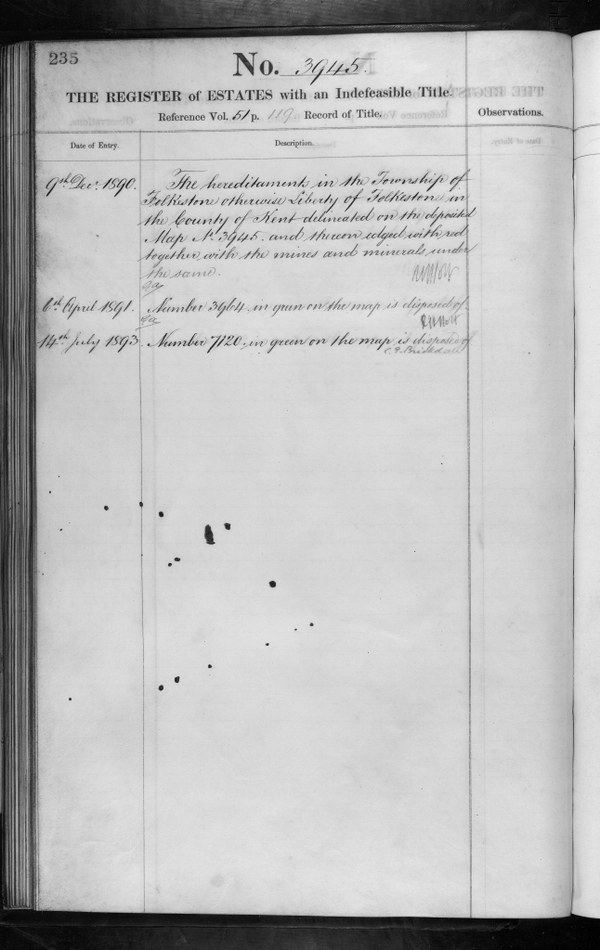 235
No. 3945.
THE REGISTER of ESTATES with an Indefeasible Title.
Reference Vol. 51 p. 119 Record of Title.
Observations.
Date of Entry.
Description.
9th Decr. 1890.
The hereditaments in the Township of
Folkeston otherwise Liberty of Folkeston in
the County of Kent delineated on the deposited
Map No. 3945. and thereon edged with red
together with the mines and minerals under
the same.
6th April 1891. Number 3964. in green on the map is disposed of.
14th July 1893. Number 7120. in green on the map is disposed of